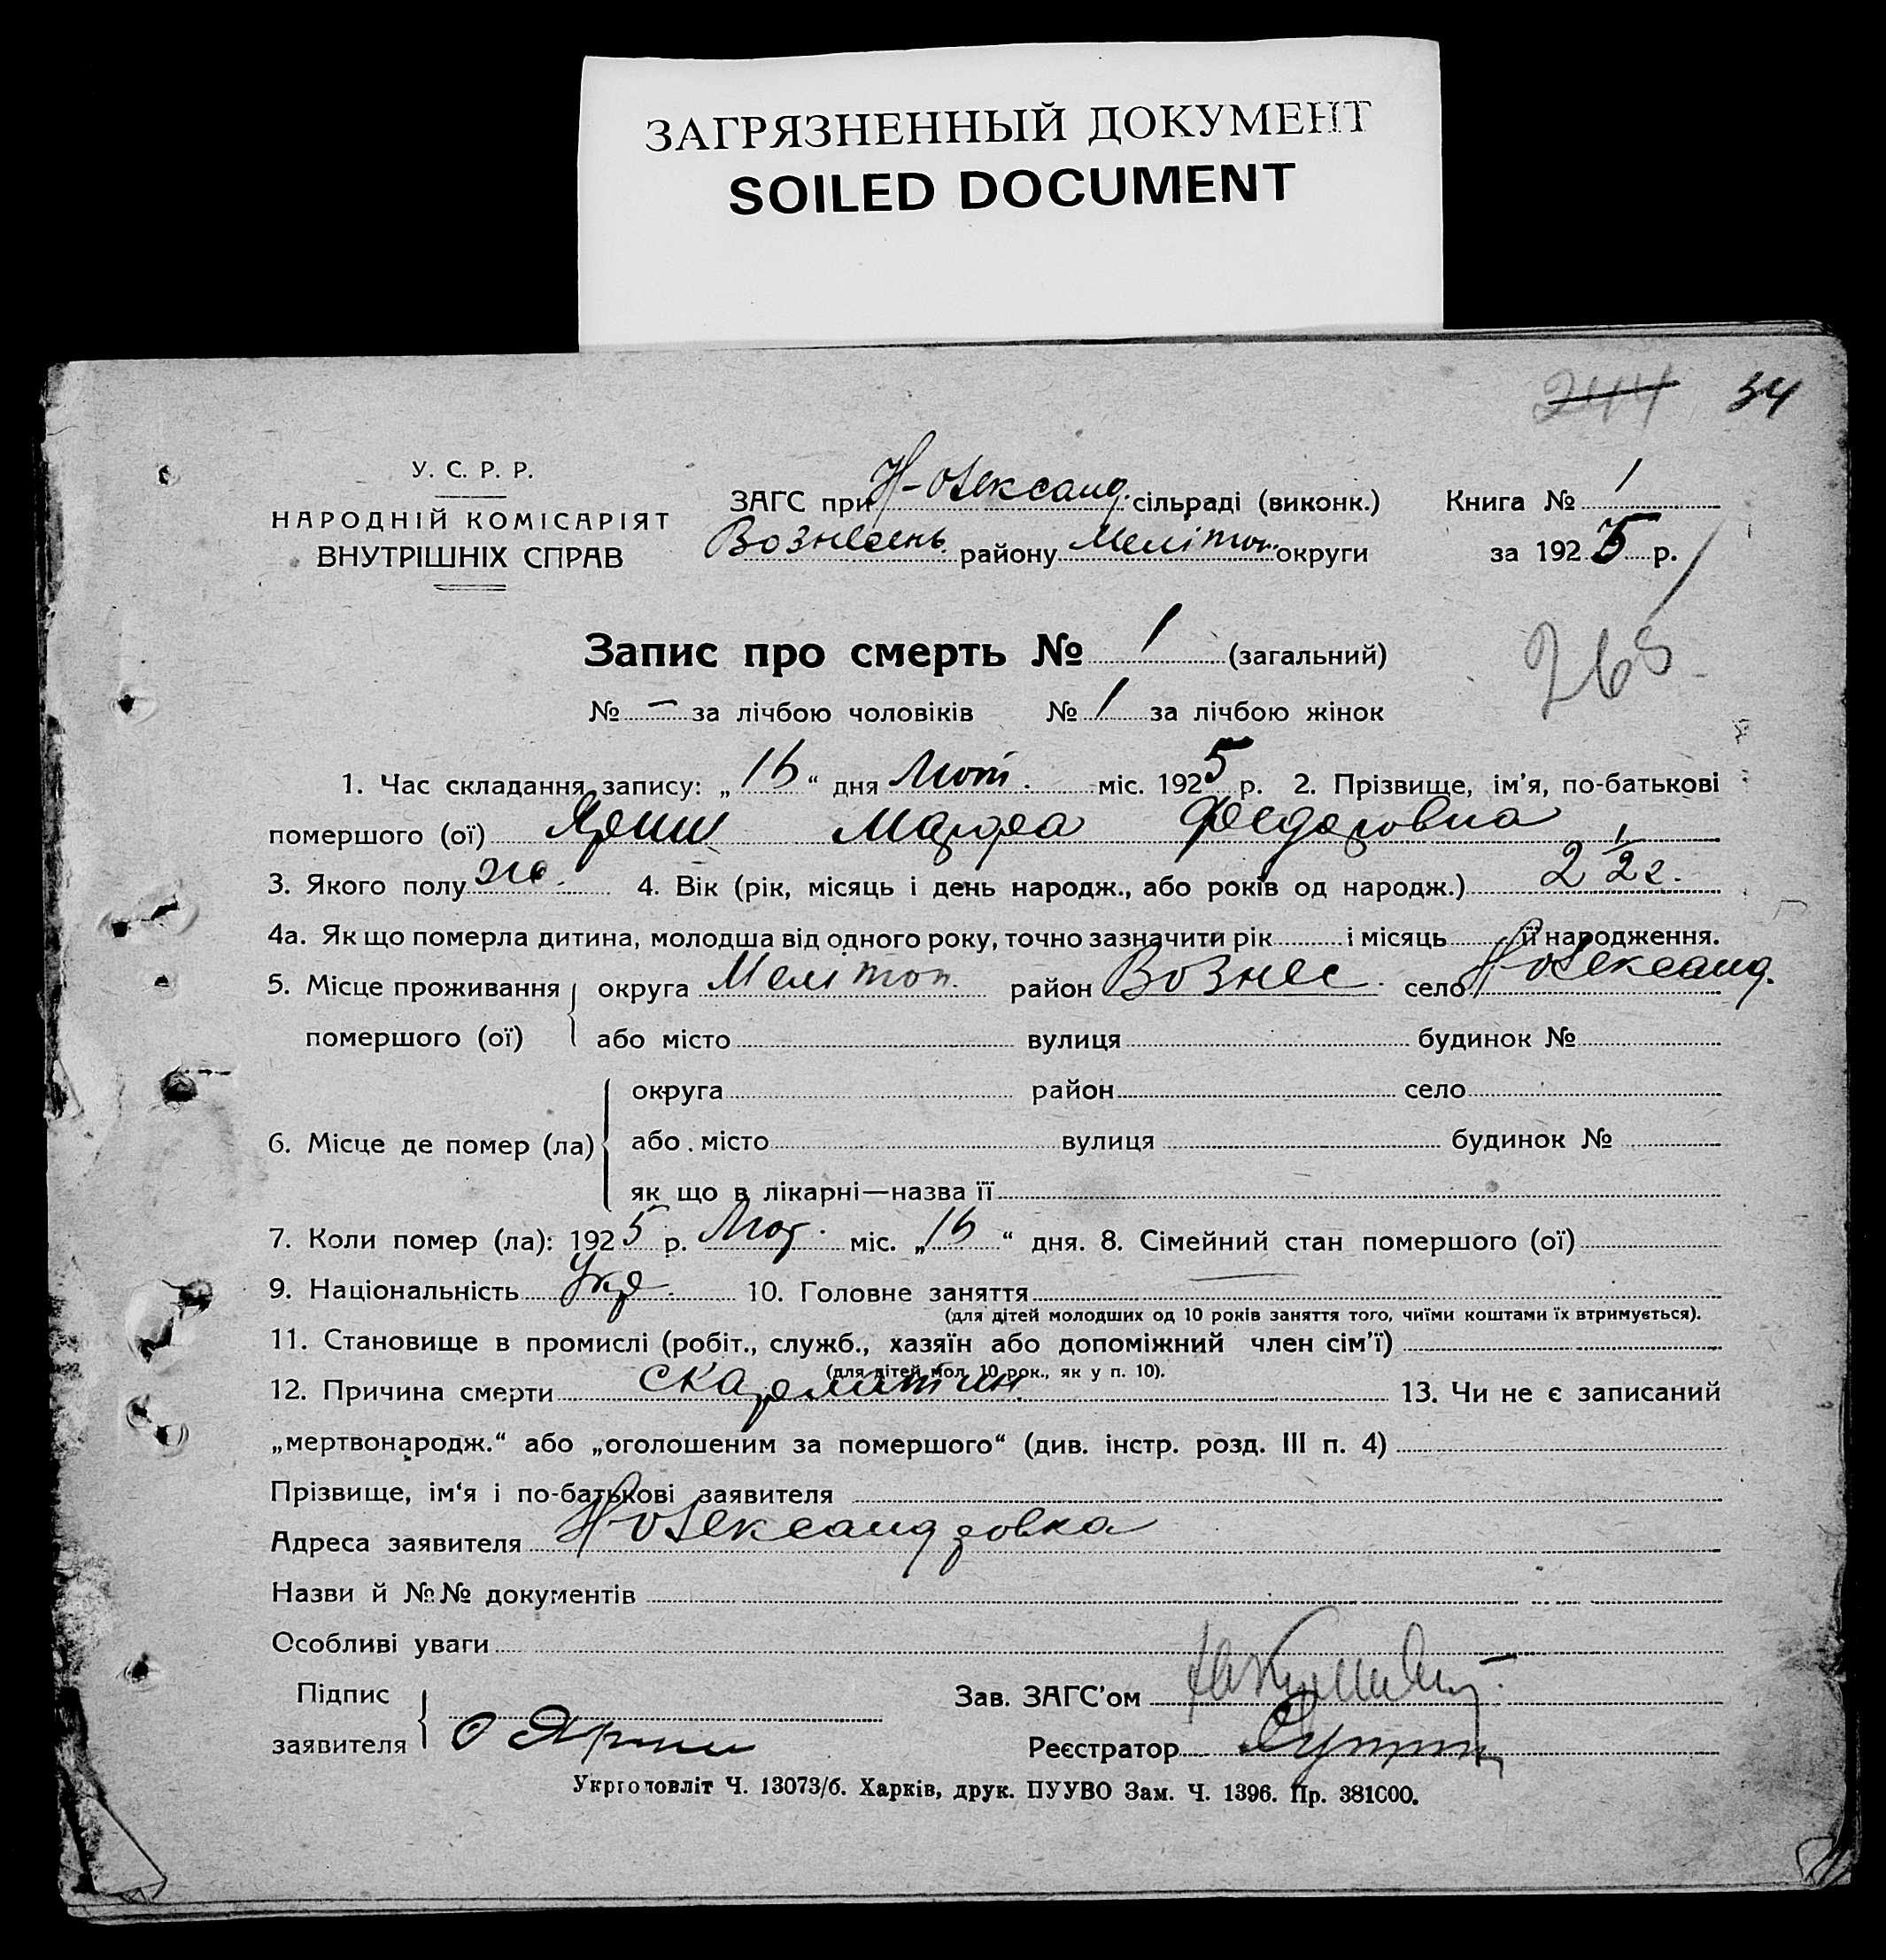 ЗАГРЯЗНЕННЫЙ ДОКУМЕНТ
SOILED DOCUMENT
244 34
У. С. Р. Р.
НАРОДНІЙ КОМІСАРІЯТ
ВНУТРІШНІХ СПРАВ
ЗАГС при Н-Олександ. сільраді (виконк.) Книга № 1
Вознесень. району Мелітоп. округи за 1925 р.
Запис про смерть № 1 (загальний)
268
№ — за лічбою чоловіків № 1 за лічбою жінок
1. Час складання запису: „16“ дня Лют. міс. 1925 р. 2. Прізвище, ім'я, по-батькові
помершого (ої) Ярош Марфа Федоровна
3. Якого полу жо. 4. Вік (рік, місяць і день народж., або років од народж.) 2 1/2 г.
4а. Як що померла дитина, молодша від одного року, точно зазначити рік і місяць її народження.
5. Місце проживання округа Мелітоп. район Вознес. село Н-Олександ.
помершого (ої) або місто вулиця будинок №
округа район село
6. Місце де помер (ла) або місто вулиця будинок №
як що в лікарні—назва її
7. Коли помер (ла): 1925 р. Лют. міс. „16“ дня. 8. Сімейний стан помершого (ої)
9. Національність Укр. 10. Головне заняття
(для дітей молодших од 10 років заняття того, чиїми коштами їх втримується).
11. Становище в промислі (робіт., служб., хазяїн або допоміжний член сім'ї)
(для дітей мол. 10 рок., як у п. 10).
12. Причина смерти скарлатин. 13. Чи не є записаний
„мертвонародж.“ або „оголошеним за помершого“ (див. інстр. розд. III п. 4)
Прізвище, ім'я і по-батькові заявителя
Адреса заявителя Н-Олександровка
Назви й №№ документів
Особливі уваги
Підпис
Зав. ЗАГС'ом
заявителя
Реєстратор
Укрголовліт Ч. 13073/б. Харків, друк. ПУУВО Зам. Ч. 1396. Пр. 381000.